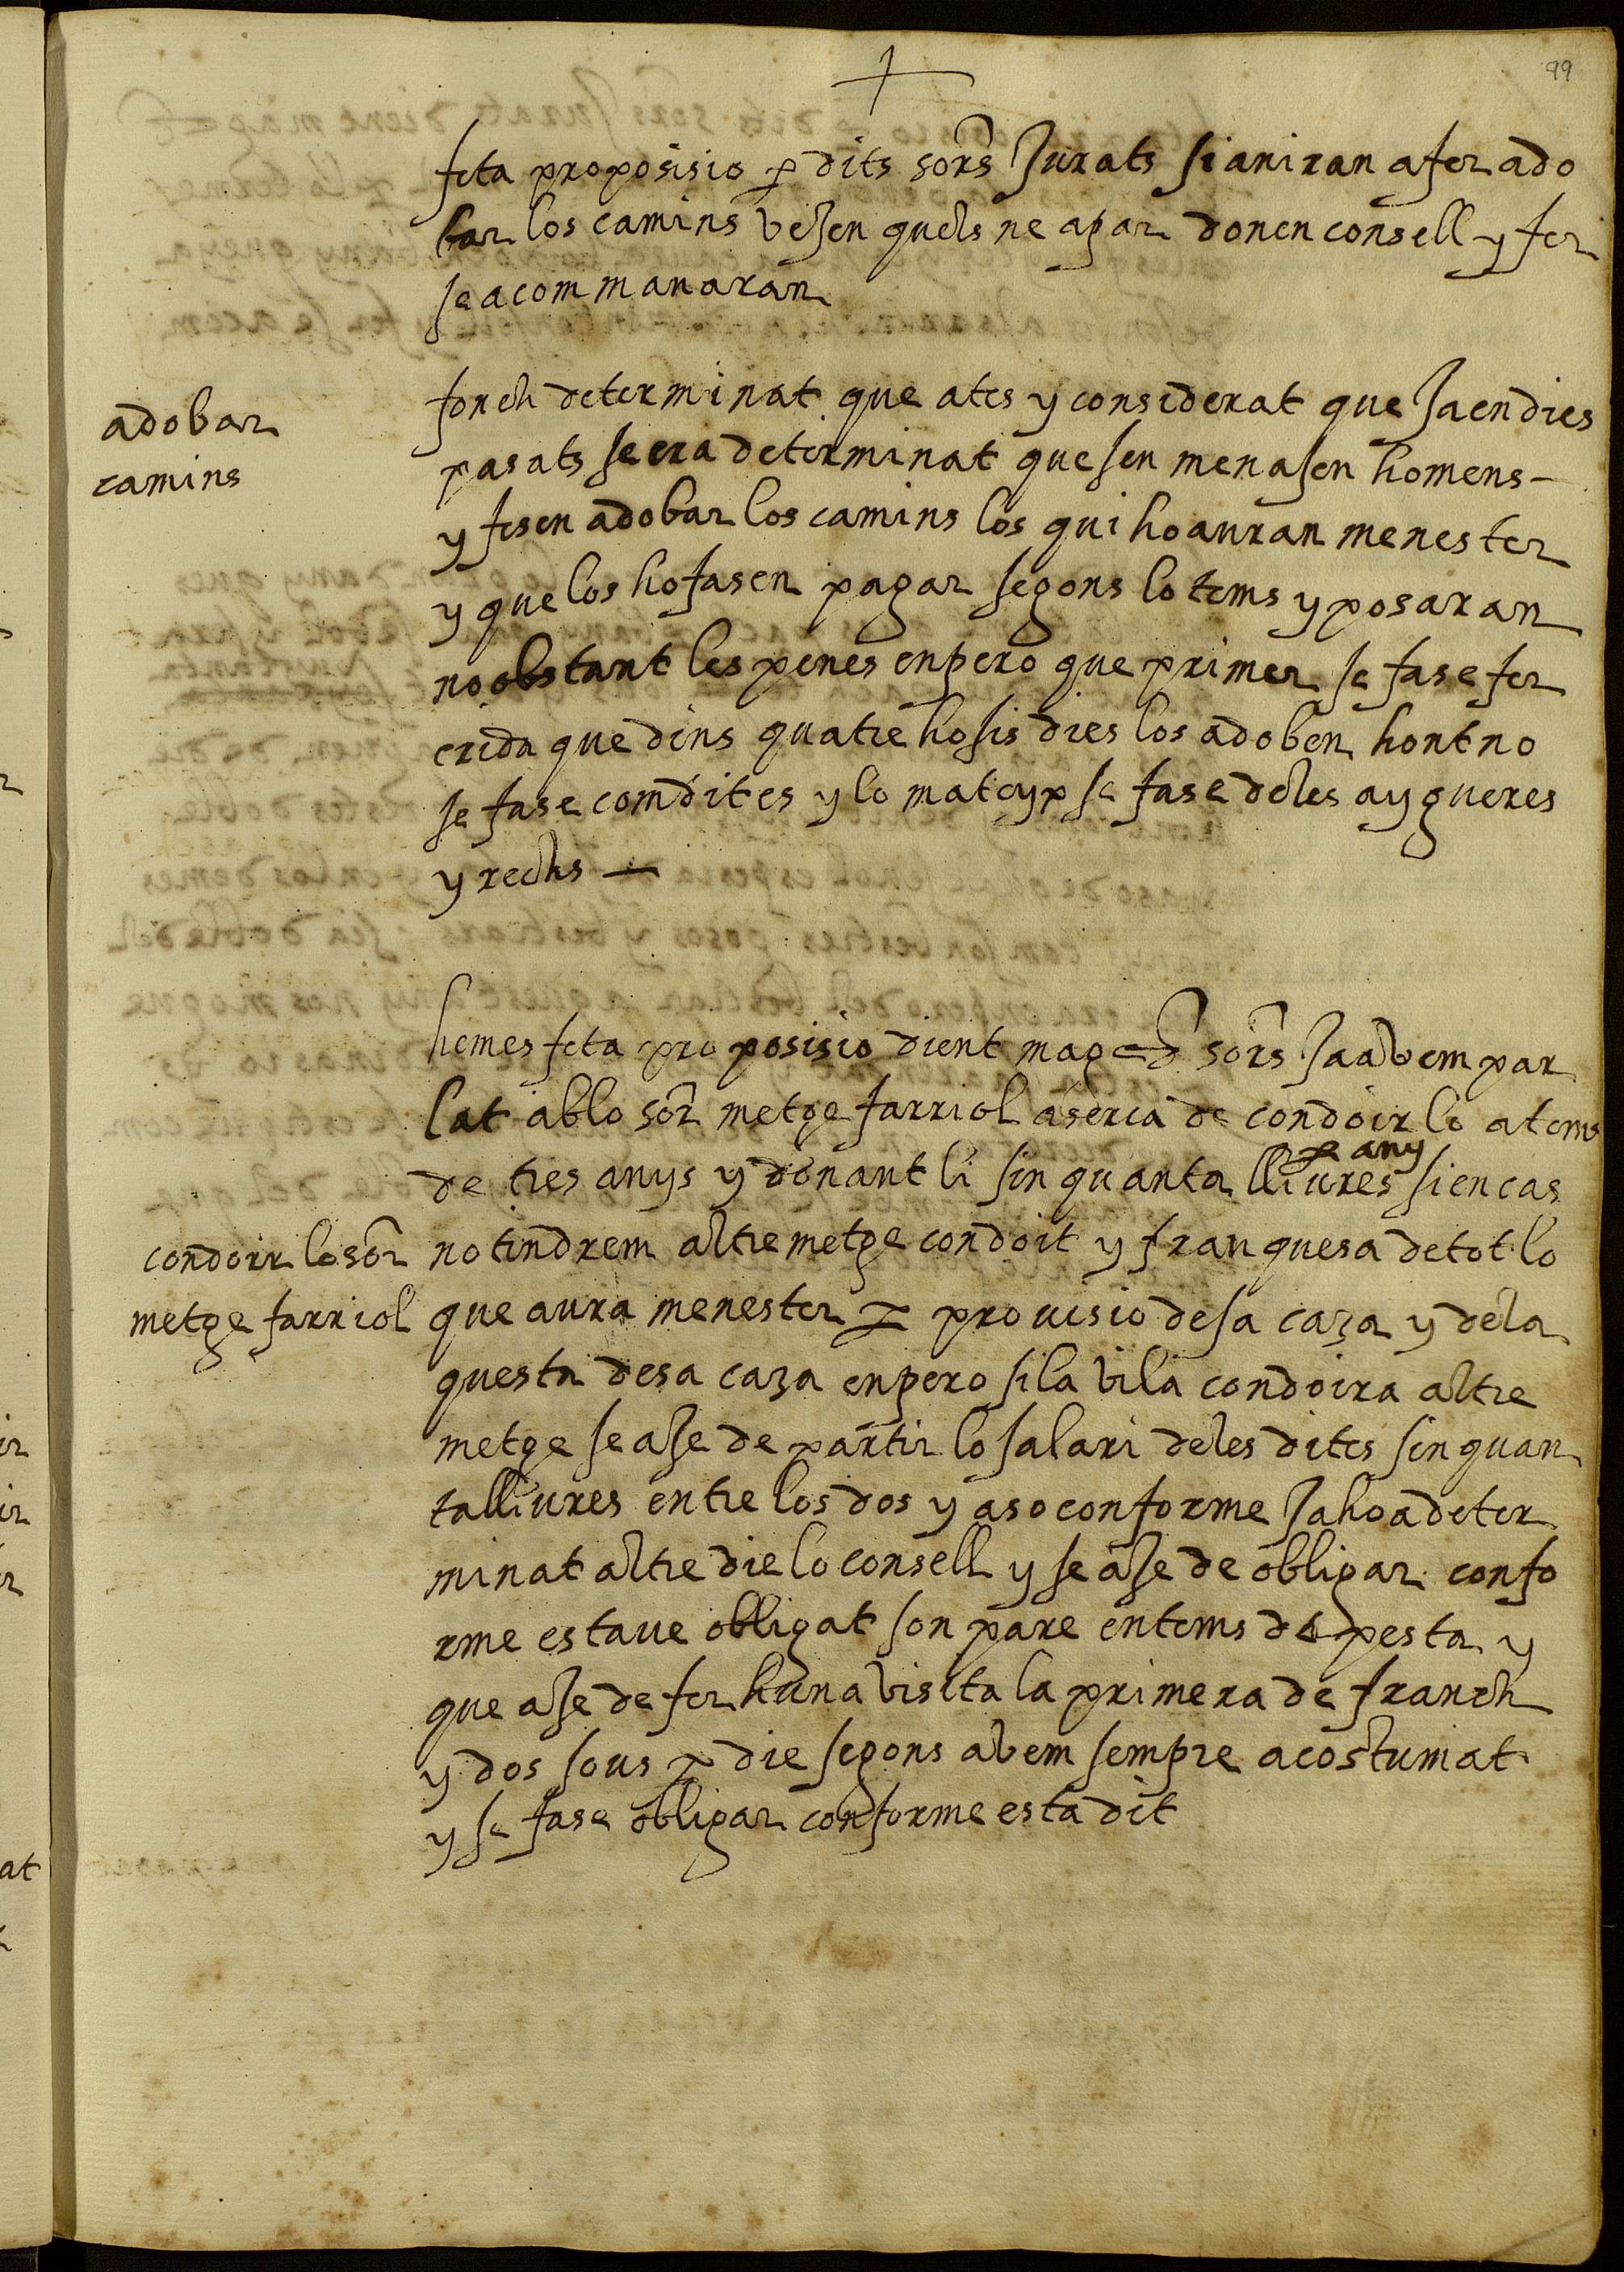 99
feta proposisio p dits sors Jurats si aniran a fer ado
bar los camins vejen quels ne apar donen consell y fer
se acommanaran
adobar
camins
fonch determinat que ates y considerat que Ja en dies
pasats se era determinat que sen menasen homens
y fesen adobar los camins los qui ho auran menester
y que los ho fasen pagar segons lo tems y posaran
no obstant les penes enpero que primer se fase fer
crida que dins quatre ho sis dies los adoben hont no
se fase com dit es y lo mateyx se fase deles aygueres
y rechs —
hemes feta proposisio dient mag sors Ja avem par
lat ab lo sor metge farriol aserca de condoir lo a tems
de tres anys y donant li sinquanta lliures p any si en cas
condoir lo sor
metge farriol
no tindrem altre metge condoit y franquesa de tot lo
que aura menester p provisio de sa caza y dela
questa de sa caza enpero si la vila condoira altre
metge se age de partir lo salari deles dites sinquan
ta lliures entre los dos y aso conforme Ja ho a deter
minat altre die lo consell y se age de obligar confo
rme estave obligat son pare en tems de pesta y
que age de fer huna visita la primera de franch
y dos sous p die segons avem sempre acostumat
y se fase obligar conforme esta dit